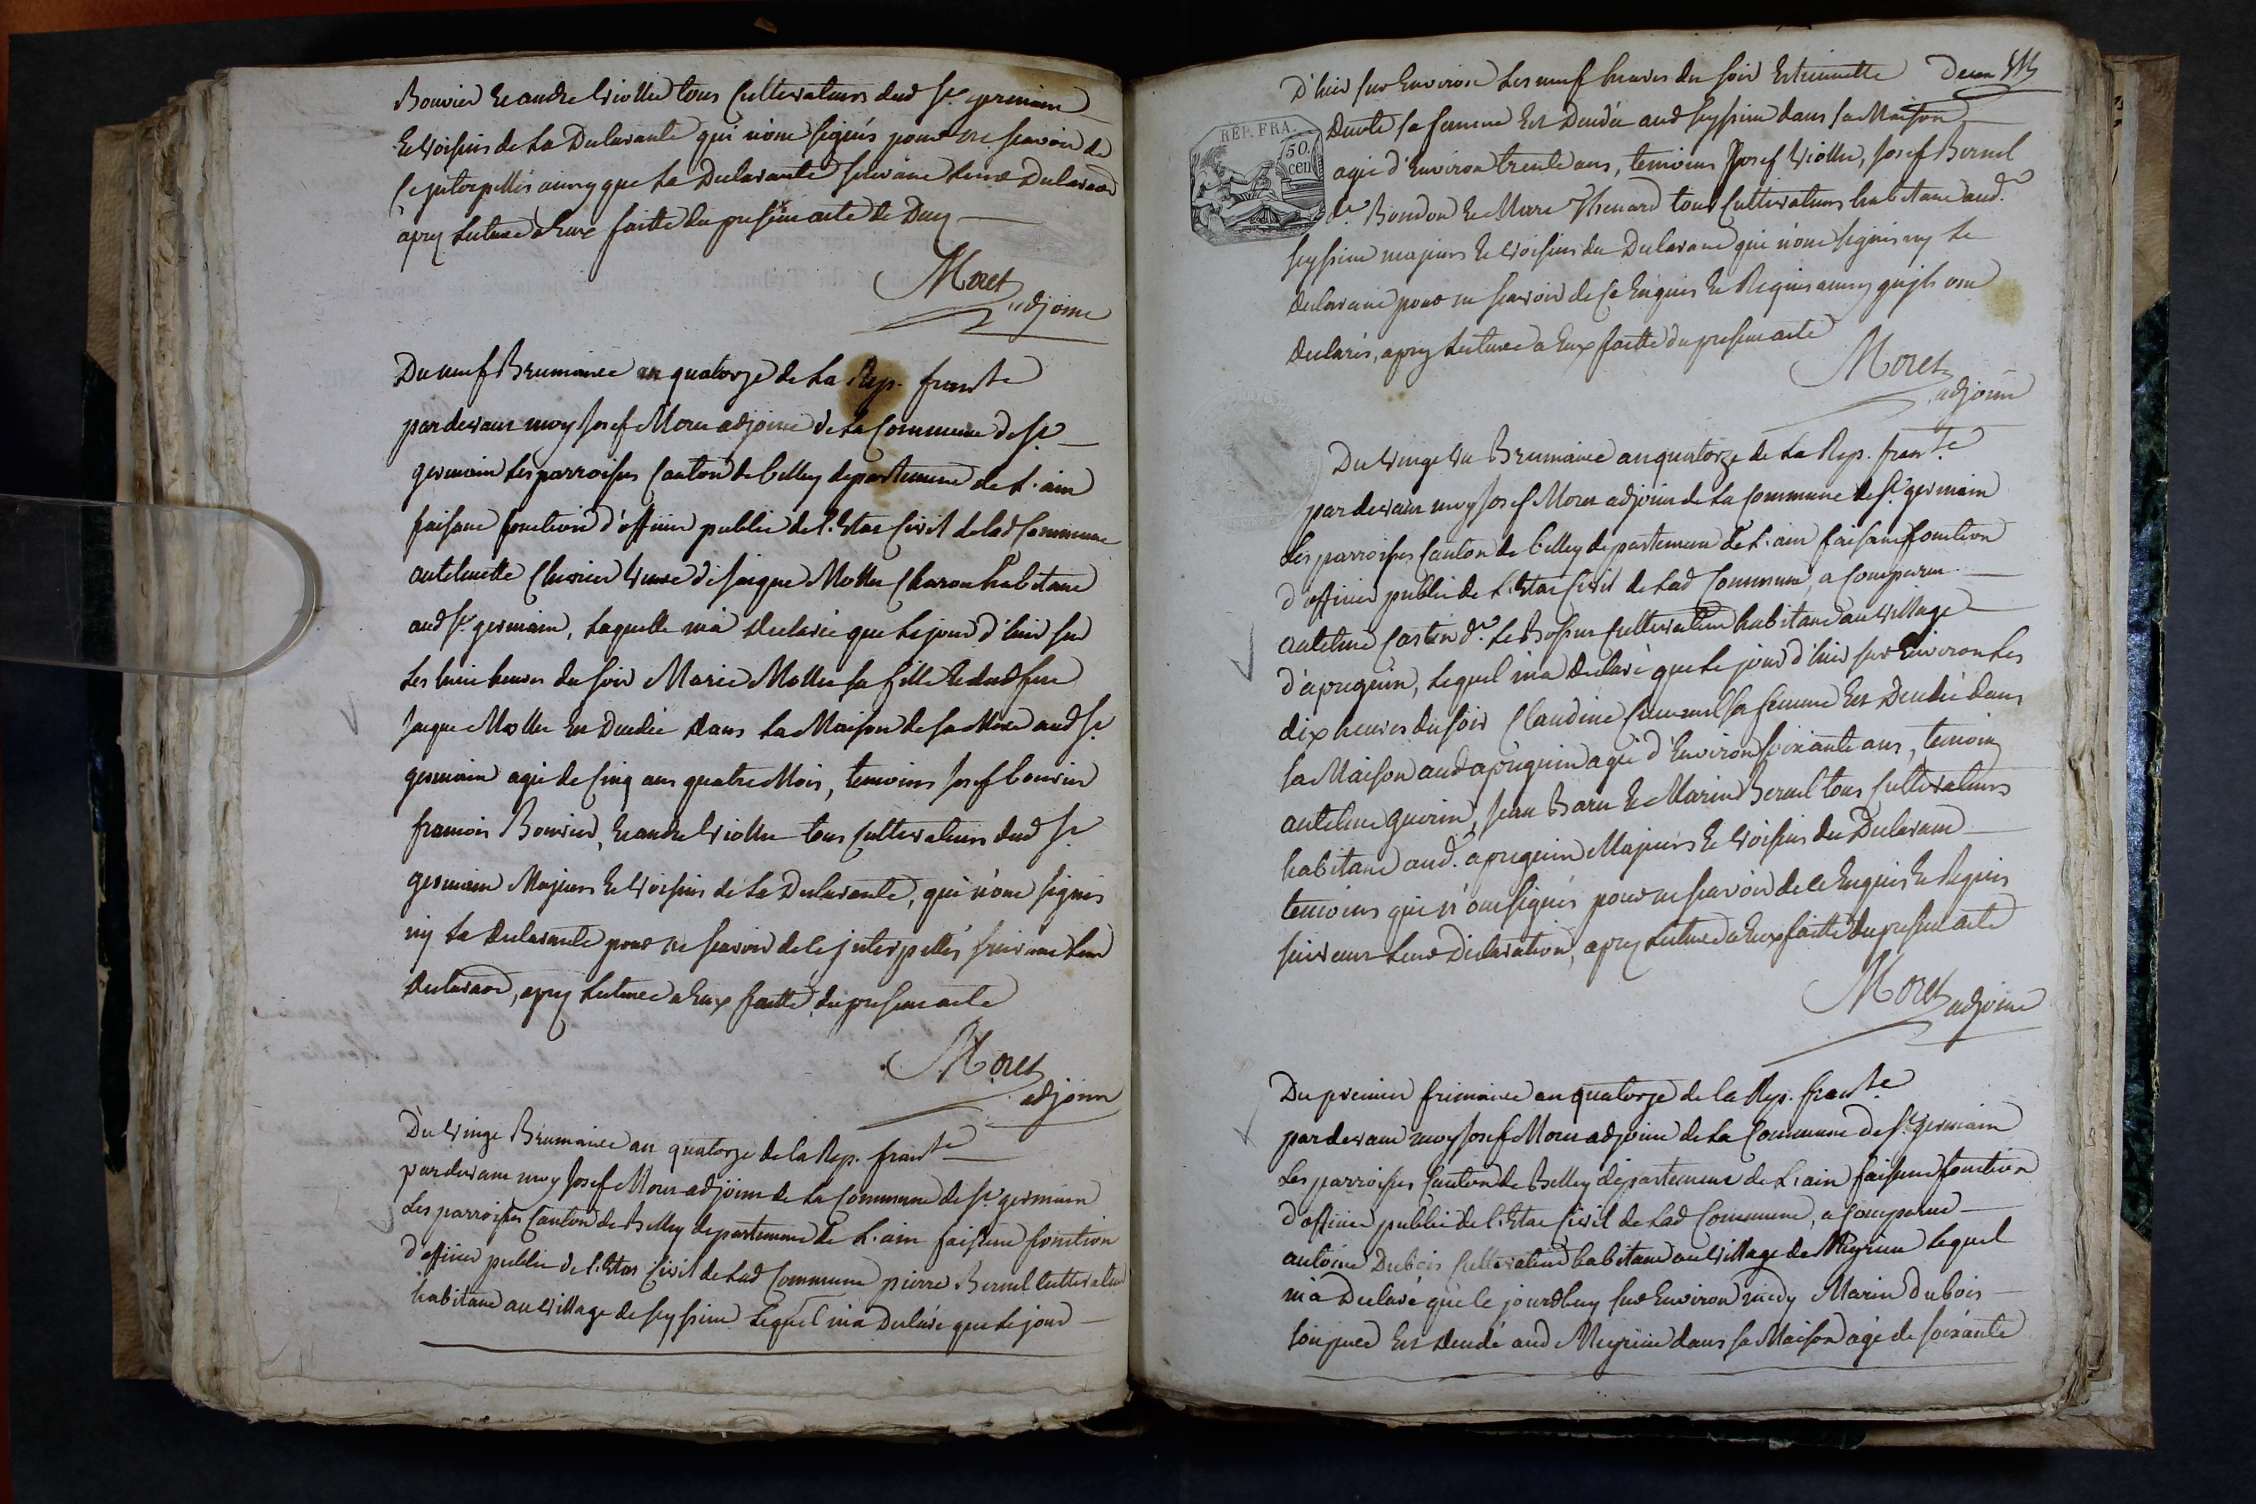 Bouvier Et andre Violler tous Cultivateurs dud St. germain
Et Voisins de La Declarante qui n'ont signés pour ne scavoir de
Ce interpellés ainsy que La Declarante suivant Leur Declaraon
apres Lecture a Eux faitte du present acte de Deces
Moret
adjoint
Du neuf Brumaire an quatorze de La Rep. franse
pardevant moy Josef Moret adjoint de La Commune de St.
germain Les parroisses Canton de belley departement de L'ain
faisant fonction d'officier public de l'Etat Civil de lad Commune
antelmette Chevrier Veuve de jacque Mollu Charon habitant
aud St. germain, Laquelle m'a declarée que Le jour d'hier sur
Les huit heures du soir Marie Mollu sa fille Et dud feu
jacque Mollu Est Decedée dans La Maison de sa Mere aud St.
germain agée de Cinq ans quatre Mois, temoins josef bouvier
francois Bouvier, Et andre Violler tous Cultivateurs dud St.
germain Majeurs Et Voisins de La Declarante, qui n'ont signés
ny La declarante pour ne scavoir de Ce interpellés suivant Leur
declaraon, apres Lecture a Eux faitte du present acte
Moret
adjoint
Du Vingt Brumaire an quatorze de la Rep. franse
pardevant moy Josef Moret adjoint de La Commune de St. germain
Les parroisses Canton de Belley departement de L'ain faisant fonction
d'officier public de l'Etat Civil de Lad Commune pierre Bernel Cultivateur
habitant au Village de seyssieu Lequel m'a Declaré que Le jour
D'hier sur Environ Les neuf heures du soir Estiennette
sa femme Est Decedée aud seyssieu dans sa Maison
REP. FRA.
50.
cen.
agée d'Environ trente ans, temoins Josef Violler, Josef Bernel
dt. Bondon Et Marc Thenard tous Cultivateurs habitant aud.
seyssieu majeurs Et Voisins du Declarant qui n'ont signés ny Le
declarant pour ne scavoir de Ce Enquis Et Requis ainsy qu'ils ont
declarés, apres Lecture a Eux faitte du present acte
Moret
adjoint
Du Vingt Un Brumaire an quatorze de La Rep. franse
pardevant moy Josef Moret adjoint de La Commune de St. germain
Les parroisses Canton de belley departement de L'ain faisant fonction
d'officier public de L'Etat Civil de Lad Commune, a Comparu
antelme Castin dt. Le Bossus Cultivateur habitant au Village
d'apreguin, Lequel m'a declaré que Le jour d'hier sur Environ Les
dix heures du soir Claudine sa femme Est Decedée dans
sa Maison aud apreguin agée d'Environ soixante ans, temoins
antelme guerin, Jean Baru Et Marin Bernel tous Cultivateurs
habitant aud. apreguin Majeurs Et Voisins du Declarant
temoins qui n'ont signés pour ne scavoir de Ce Enquis Et Requis
suivant Leur Declaration, apres Lecture a Eux faitte du present acte
Moret
adjoint
Du premier frimaire an quatorze de la Rep. franse
pardevant moy Josef Moret adjoint de La Commune de St. germain
Les parroisses Canton de Belley departement de L'ain faisant fonction
d'officier public de l'Etat Civil de Lad Commune, a Comparu
antoine Dubois Cultivateur habitant au Village de Meyrieu Lequel
m'a Declaré que le jourdhuy sur Environ midy Marin dubois
son pere Est decedé aud Meyrieu dans sa Maison agé de soixante